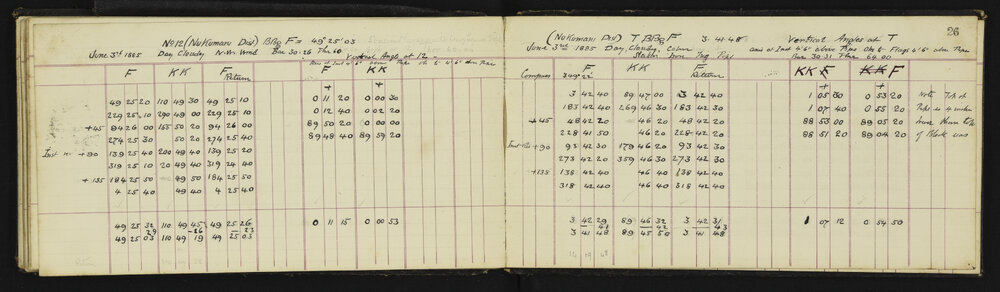 No 12 (Nukumaru Dist) BBg F = 49° 25' 03
June 3rd 1885 Day Cloudy N.W. Wind Bar 30.26 Ther 60
Vertical Angles at 12
F KK F Return F KK
+ +
49 25 20 110 49 30 49 25 10 0 11 20 0 00 30
229 25 10 290 49 00 229 25 10 0 12 40 0 02 20
+45 94 26 00 155 50 20 94 26 00 89 50 20 0 00 00
274 25 30 50 20 274 25 40 89 48 40 89 59 20
Inst +90 139 25 40 200 49 40 139 25 20
319 25 10 20 49 40 319 24 40
+135 184 25 50 49 50 184 25 50
4 25 40 49 40 4 25 40
49 25 32 110 49 45 49 25 26 0 11 15 0 00 53
29 26 23
49 25 03 110 49 19 49 25 03
26
(Nukumaru Dist) T BBg F 3.41.48 Vertical Angles at T
June 3rd 1885 Day, Cloudy, Calm
Bar 30.31 Ther 64.00
Compass F KK F Return KK F
+ +
3 42 40 89 47 00 3 42 40 1 05 30 0 53 20 Note Top of
183 42 40 269 46 30 183 42 30 1 07 40 0 55 20 Pipe is 4 inches
+45 48 42 20 46 20 48 42 20 88 53 00 89 05 20 lower than top
228 41 50 46 20 228 42 20 88 51 20 89 04 20 of Block was
Inst +90 93 42 30 179 46 20 93 42 30
273 42 20 359 46 30 273 42 30
+135 138 42 40 46 40 138 42 40
318 42 40 46 40 318 42 40
3 42 29 89 46 32 3 42 31 1 07 12 0 54 50
41 42 43
3 41 48 89 45 50 3 41 48